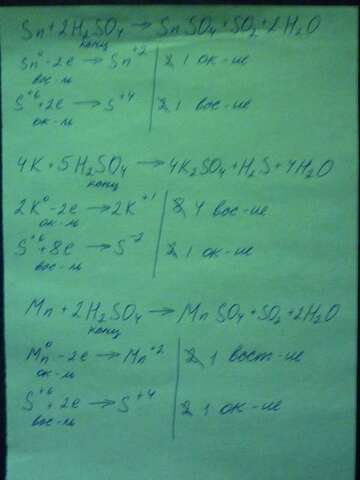 Sn + 2H₂SO₄ → SnSO₄ + SO₂ + 2H₂O
конц
Sn⁰ - 2e → Sn⁺² | 2 1 ок-ие
вос-ль
S⁺⁶ + 2e → S⁺⁴ | 2 1 вос-ие
ок-ль
4K + 5H₂SO₄ → 4K₂SO₄ + H₂S + 4H₂O
конц
2K⁰ - 2e → 2K⁺¹ | 8 4 вос-ие
ок-ль
S⁺⁶ + 8e → S⁻² | 2 1 ок-ие
вос-ль
Mn + 2H₂SO₄ → MnSO₄ + SO₂ + 2H₂O
конц
Mn⁰ - 2e → Mn⁺² | 2 1 вост-ие
ок-ль
S⁺⁶ + 2e → S⁺⁴ | 2 1 ок-ие
вос-ль